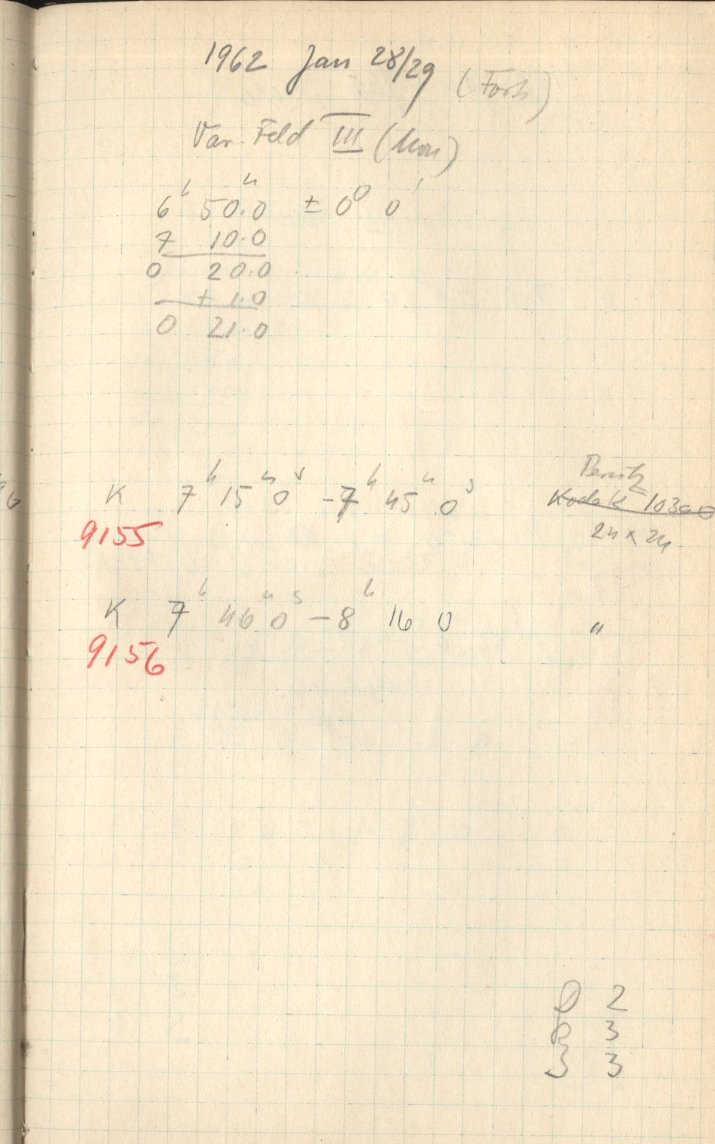 1962 Jan 28/29 (Forts)
Var. Feld III (Mon)
6h 50m.0 ± 0° 0'
7 10.0
0 20.0
+ 1.0
0 21.0
K 7h 15m 0s - 7h 45m 0s Perutz
Kodak 103aO
9155 24 x 24
K 7h 46m 0s - 8h 16 0 "
9156
D 2
R 3
S 3